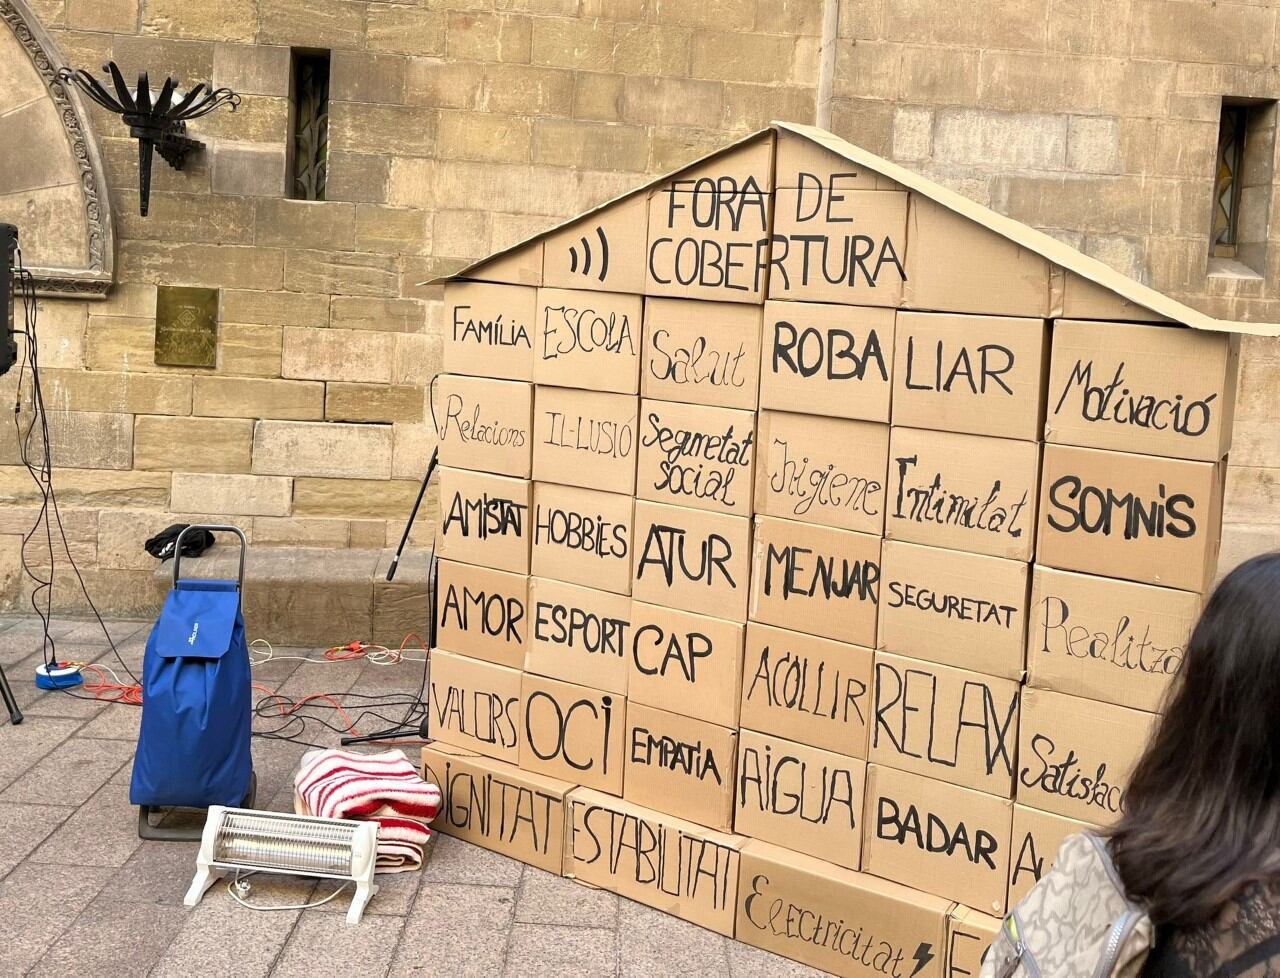 FORA DE
COBERTURA
FAMÍLIA ESCOLA Salut ROBA LLAR Motivació
Relacions IL·LUSIÓ Seguretat
social Higiene Intimitat SOMNIS
AMISTAT HOBBIES ATUR MENJAR SEGURETAT
AMOR ESPORT CAP ACOLLIR RELAX
VALORS OCI EMPATIA AIGUA BADAR
DIGNITAT ESTABILITAT Electricitat